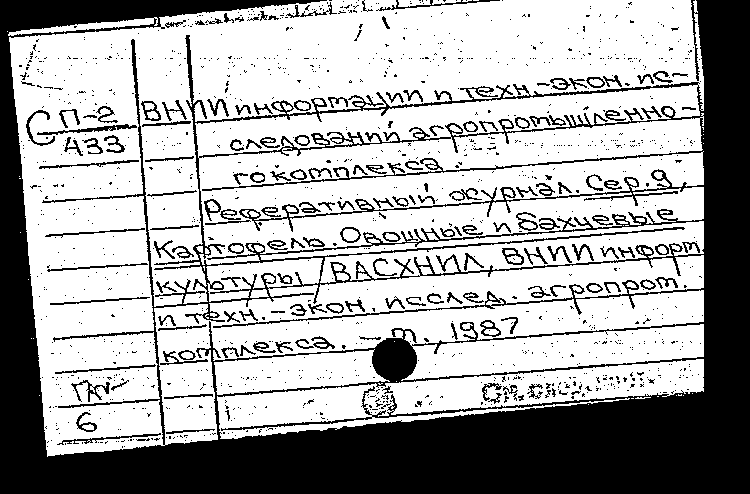 С П-2
433
ВНИИ информации и техн.-экон. ис-
следований агропромышленно-
го комплекса.
Реферативный журнал. Сер. 9,
Картофель. Овощные и бахчевые
культуры / ВАСХНИЛ, ВНИИ информ.
и техн.-экон. исслед. агропром.
комплекса. – М., 1987
6
См. след.